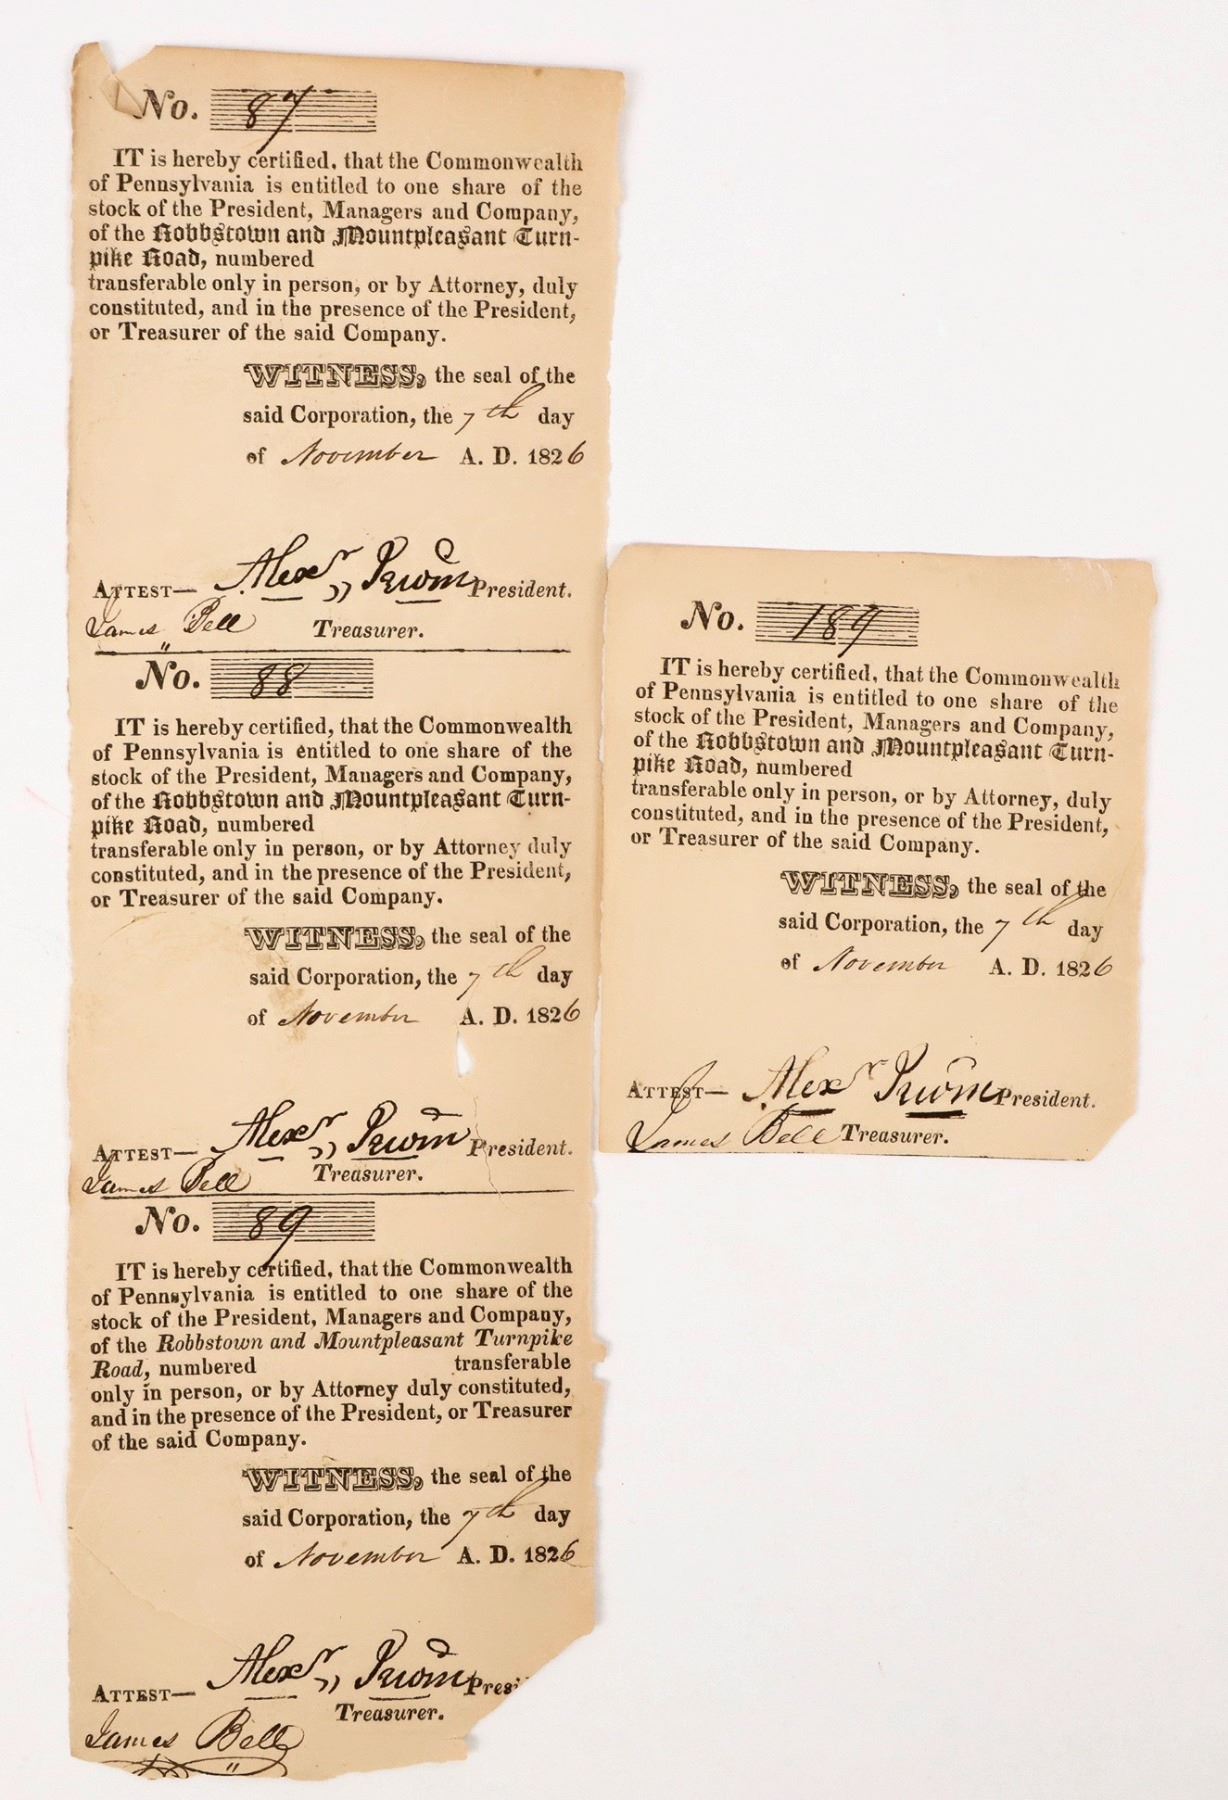 No. 87
IT is hereby certified, that the Commonwealth
of Pennsylvania is entitled to one share of the
stock of the President, Managers and Company,
of the Robbstown and Mountpleasant Turn-
pike Road, numbered
transferable only in person, or by Attorney, duly
constituted, and in the presence of the President,
or Treasurer of the said Company.
WITNESS, the seal of the
said Corporation, the 7th day
of November A. D. 1826
ATTEST— Alexr Irwin President.
James Bell Treasurer.
No. 88
IT is hereby certified, that the Commonwealth
of Pennsylvania is entitled to one share of the
stock of the President, Managers and Company,
of the Robbstown and Mountpleasant Turn-
pike Road, numbered
transferable only in person, or by Attorney duly
constituted, and in the presence of the President,
or Treasurer of the said Company.
WITNESS, the seal of the
said Corporation, the 7th day
of November A. D. 1826
ATTEST— Alexr Irwin President.
James Bell Treasurer.
No. 89
IT is hereby certified, that the Commonwealth
of Pennsylvania is entitled to one share of the
stock of the President, Managers and Company,
of the Robbstown and Mountpleasant Turnpike
Road, numbered transferable
only in person, or by Attorney duly constituted,
and in the presence of the President, or Treasurer
of the said Company.
WITNESS, the seal of the
said Corporation, the 7th day
of November A. D. 1826
ATTEST— Alexr Irwin Presi
Treasurer.
James Bell
No. 189
IT is hereby certified, that the Commonwealth
of Pennsylvania is entitled to one share of the
stock of the President, Managers and Company,
of the Robbstown and Mountpleasant Turn-
pike Road, numbered
transferable only in person, or by Attorney, duly
constituted, and in the presence of the President,
or Treasurer of the said Company.
WITNESS, the seal of the
said Corporation, the 7th day
of November A. D. 1826
ATTEST— Alexr Irwin President.
James Bell Treasurer.